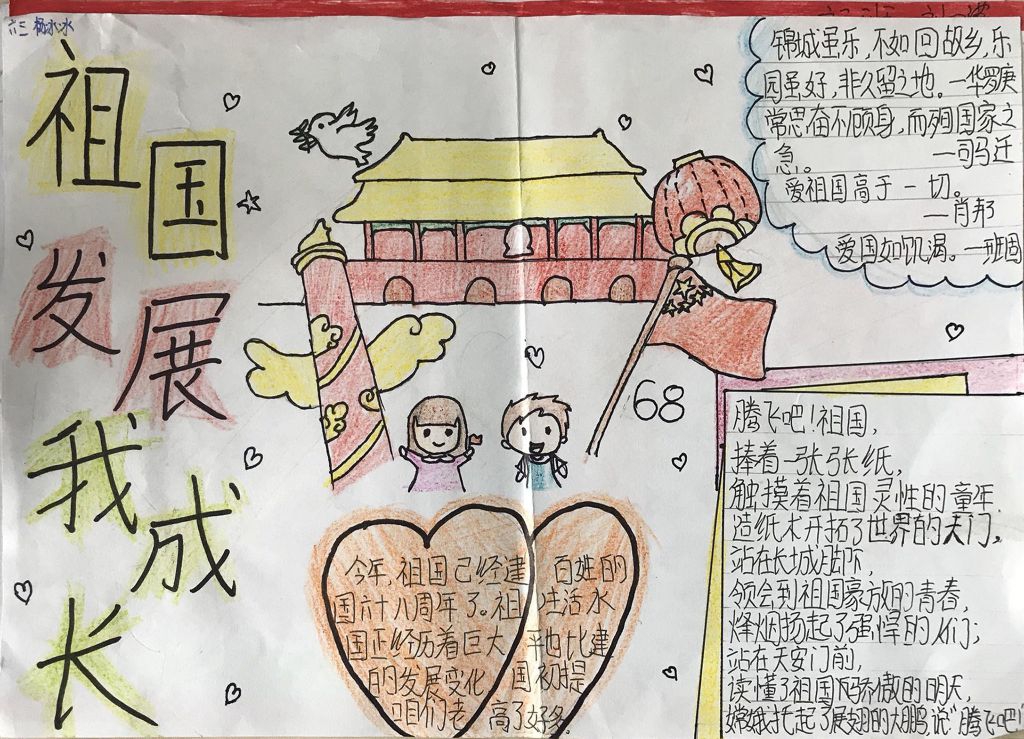 六三 杨冰冰
祖国
发展
我成
长
锦城虽乐,不如回故乡,乐
园虽好,非久留之地。一华罗庚
常思奋不顾身,而殉国家之
急。 一司马迁
爱祖国高于一切。
一肖邦
爱国如饥渴。一班固
68
腾飞吧!祖国,
捧着一张张纸,
触摸着祖国灵性的童年.
造纸术开拓了世界的天门。
站在长城脚下,
领会到祖国豪放的青春,
烽烟扬起了强悍的人们;
站在天安门前,
读懂了祖国骄傲的明天,
嫦娥托起了展翅的大鹏,说"腾飞吧!
今年,祖国已经建
国六十八周年了。祖
国正经历着巨大
的发展变化
咱们老
百姓的
生活水
平也比建
国初提
高了好多